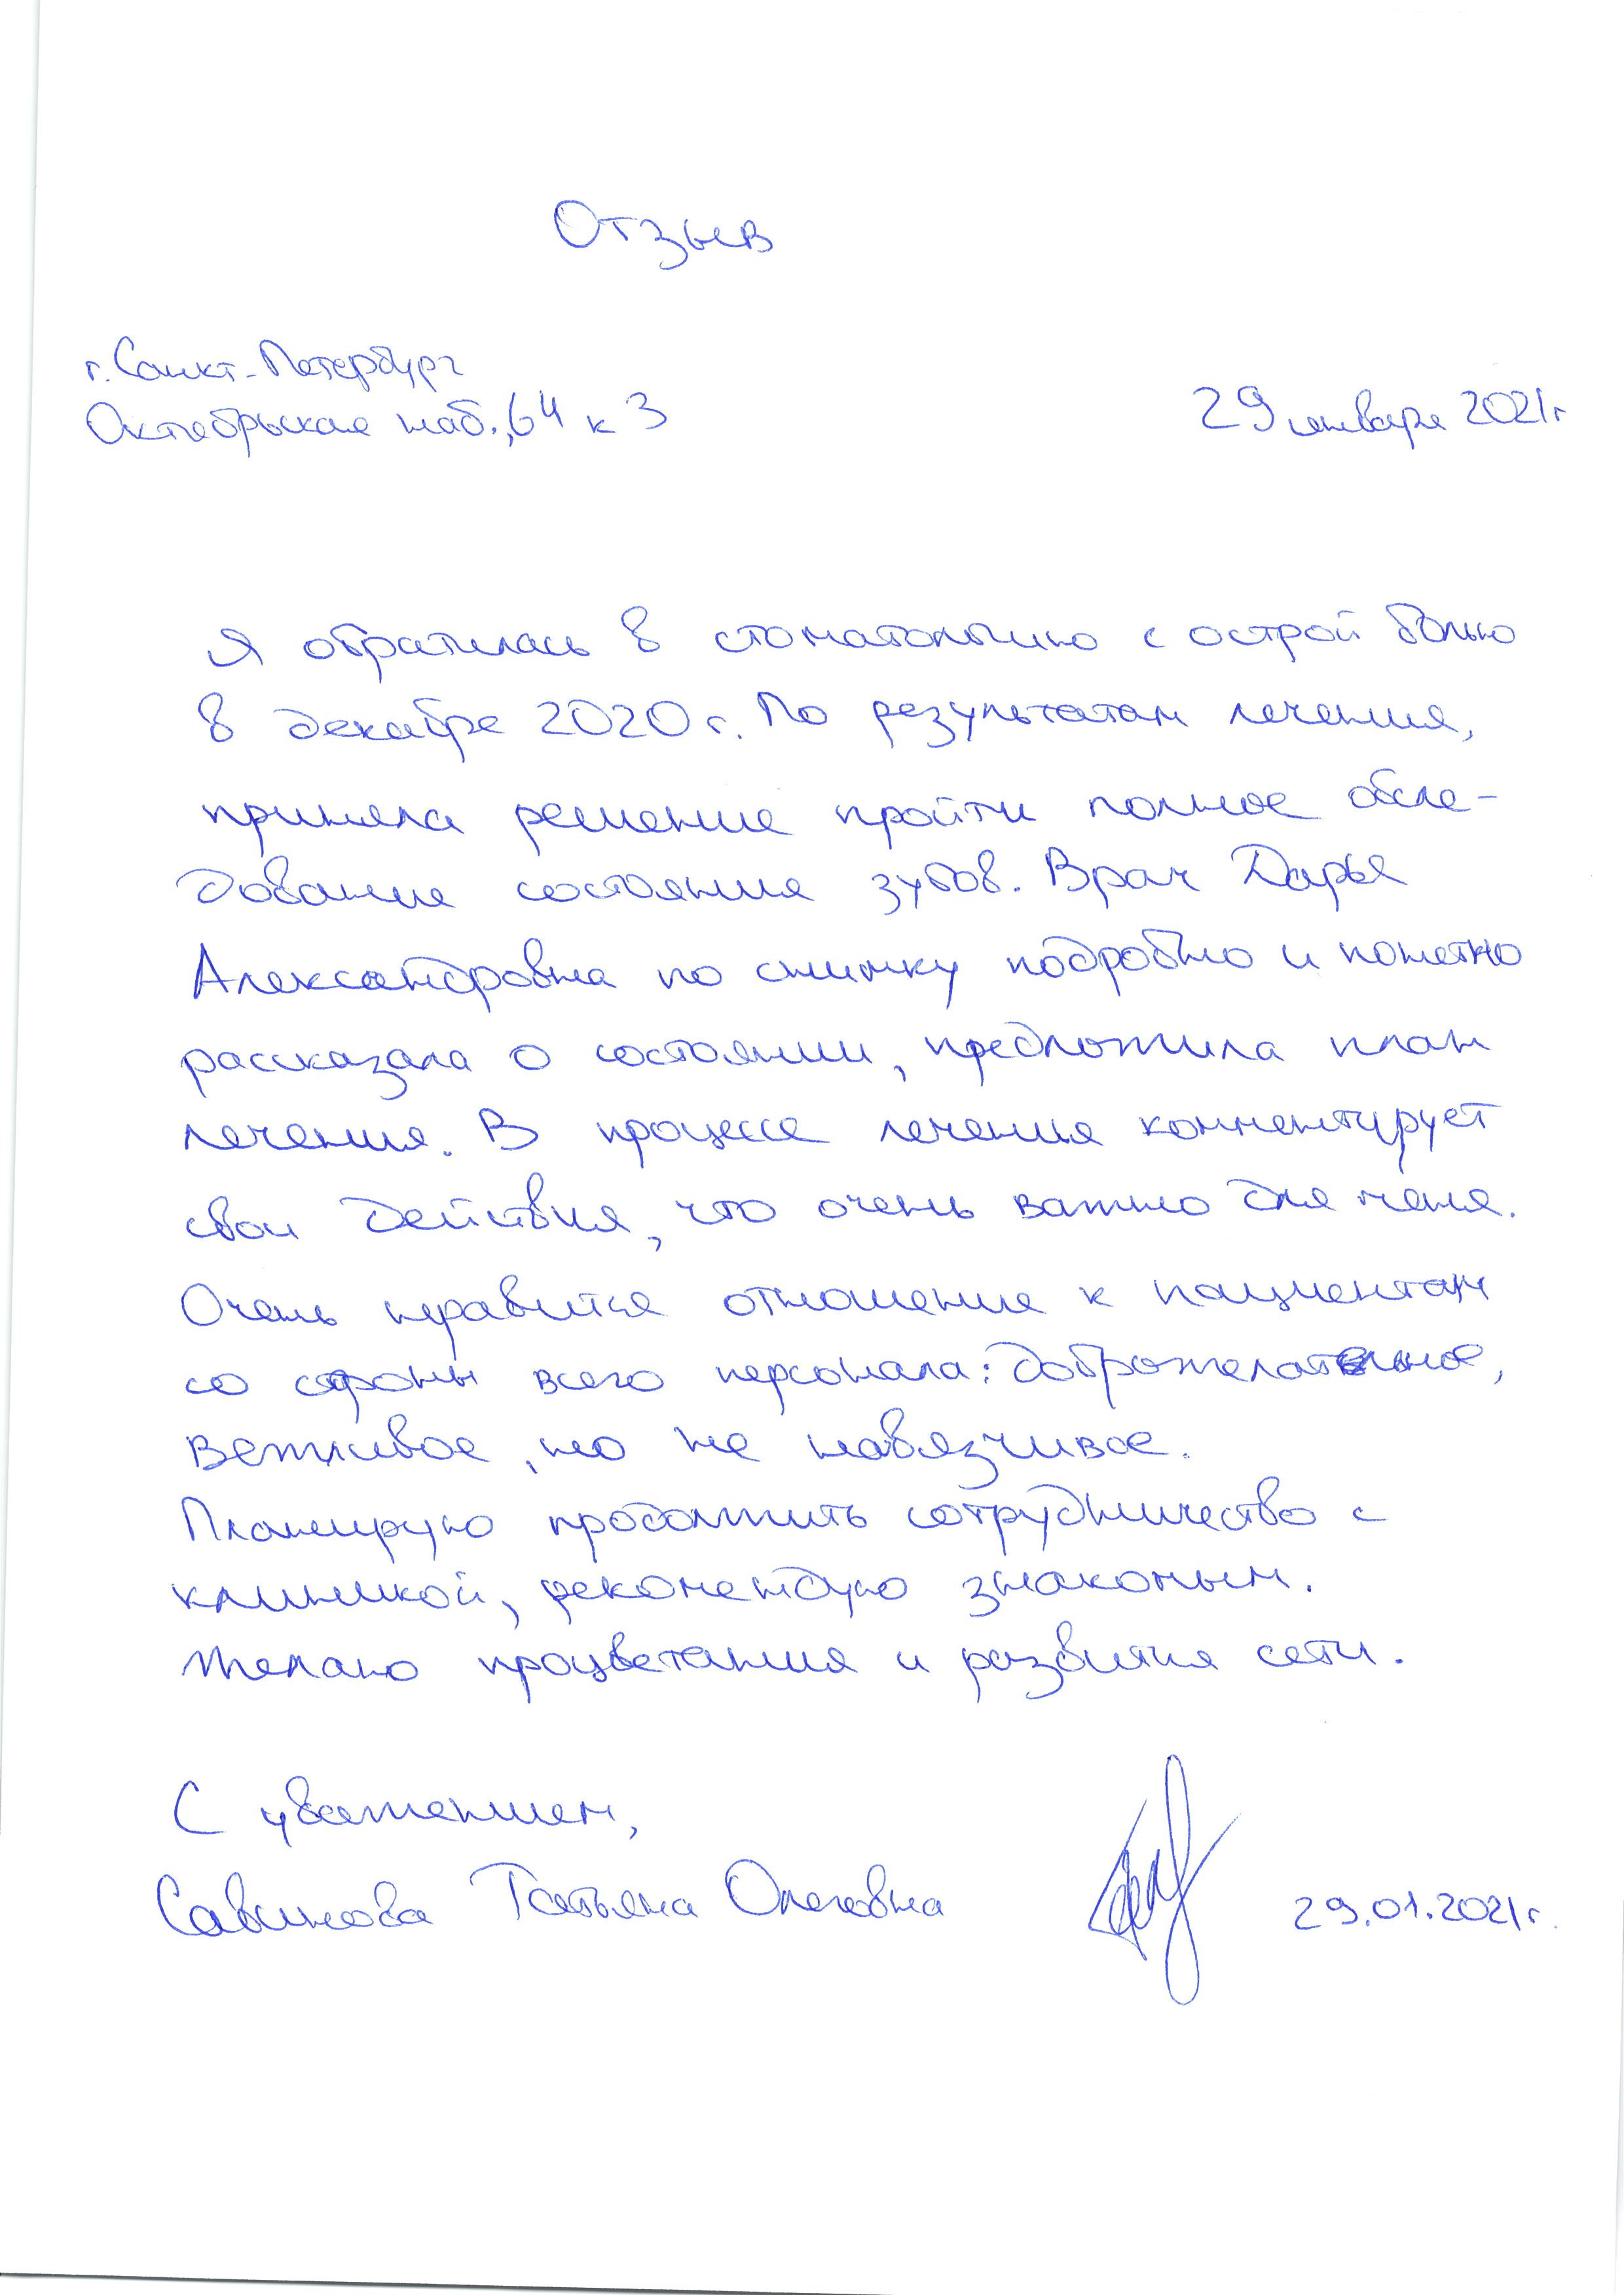 Отзыв
г. Санкт-Петербург
Октябрьская наб., 64 к 3
29 января 2021г
Я обратилась в стоматологию с острой болью
в декабре 2020 г. По результатам лечения,
приняла решение пройти полное обсле-
дование состояния зубов. Врач Дарья
Александровна по снимку подробно и понятно
рассказала о состоянии, предложила план
лечения. В процессе лечения комментирует
свои действия, что очень важно для меня.
Очень нравится отношение к пациентам
со стороны всего персонала: доброжелательное,
вежливое, но не навязчивое.
Планирую продолжить сотрудничество с
клиникой, рекомендую знакомым.
Желаю процветания и развития сети.
С уважением,
Савинова Татьяна Олеговна
29.01.2021г.